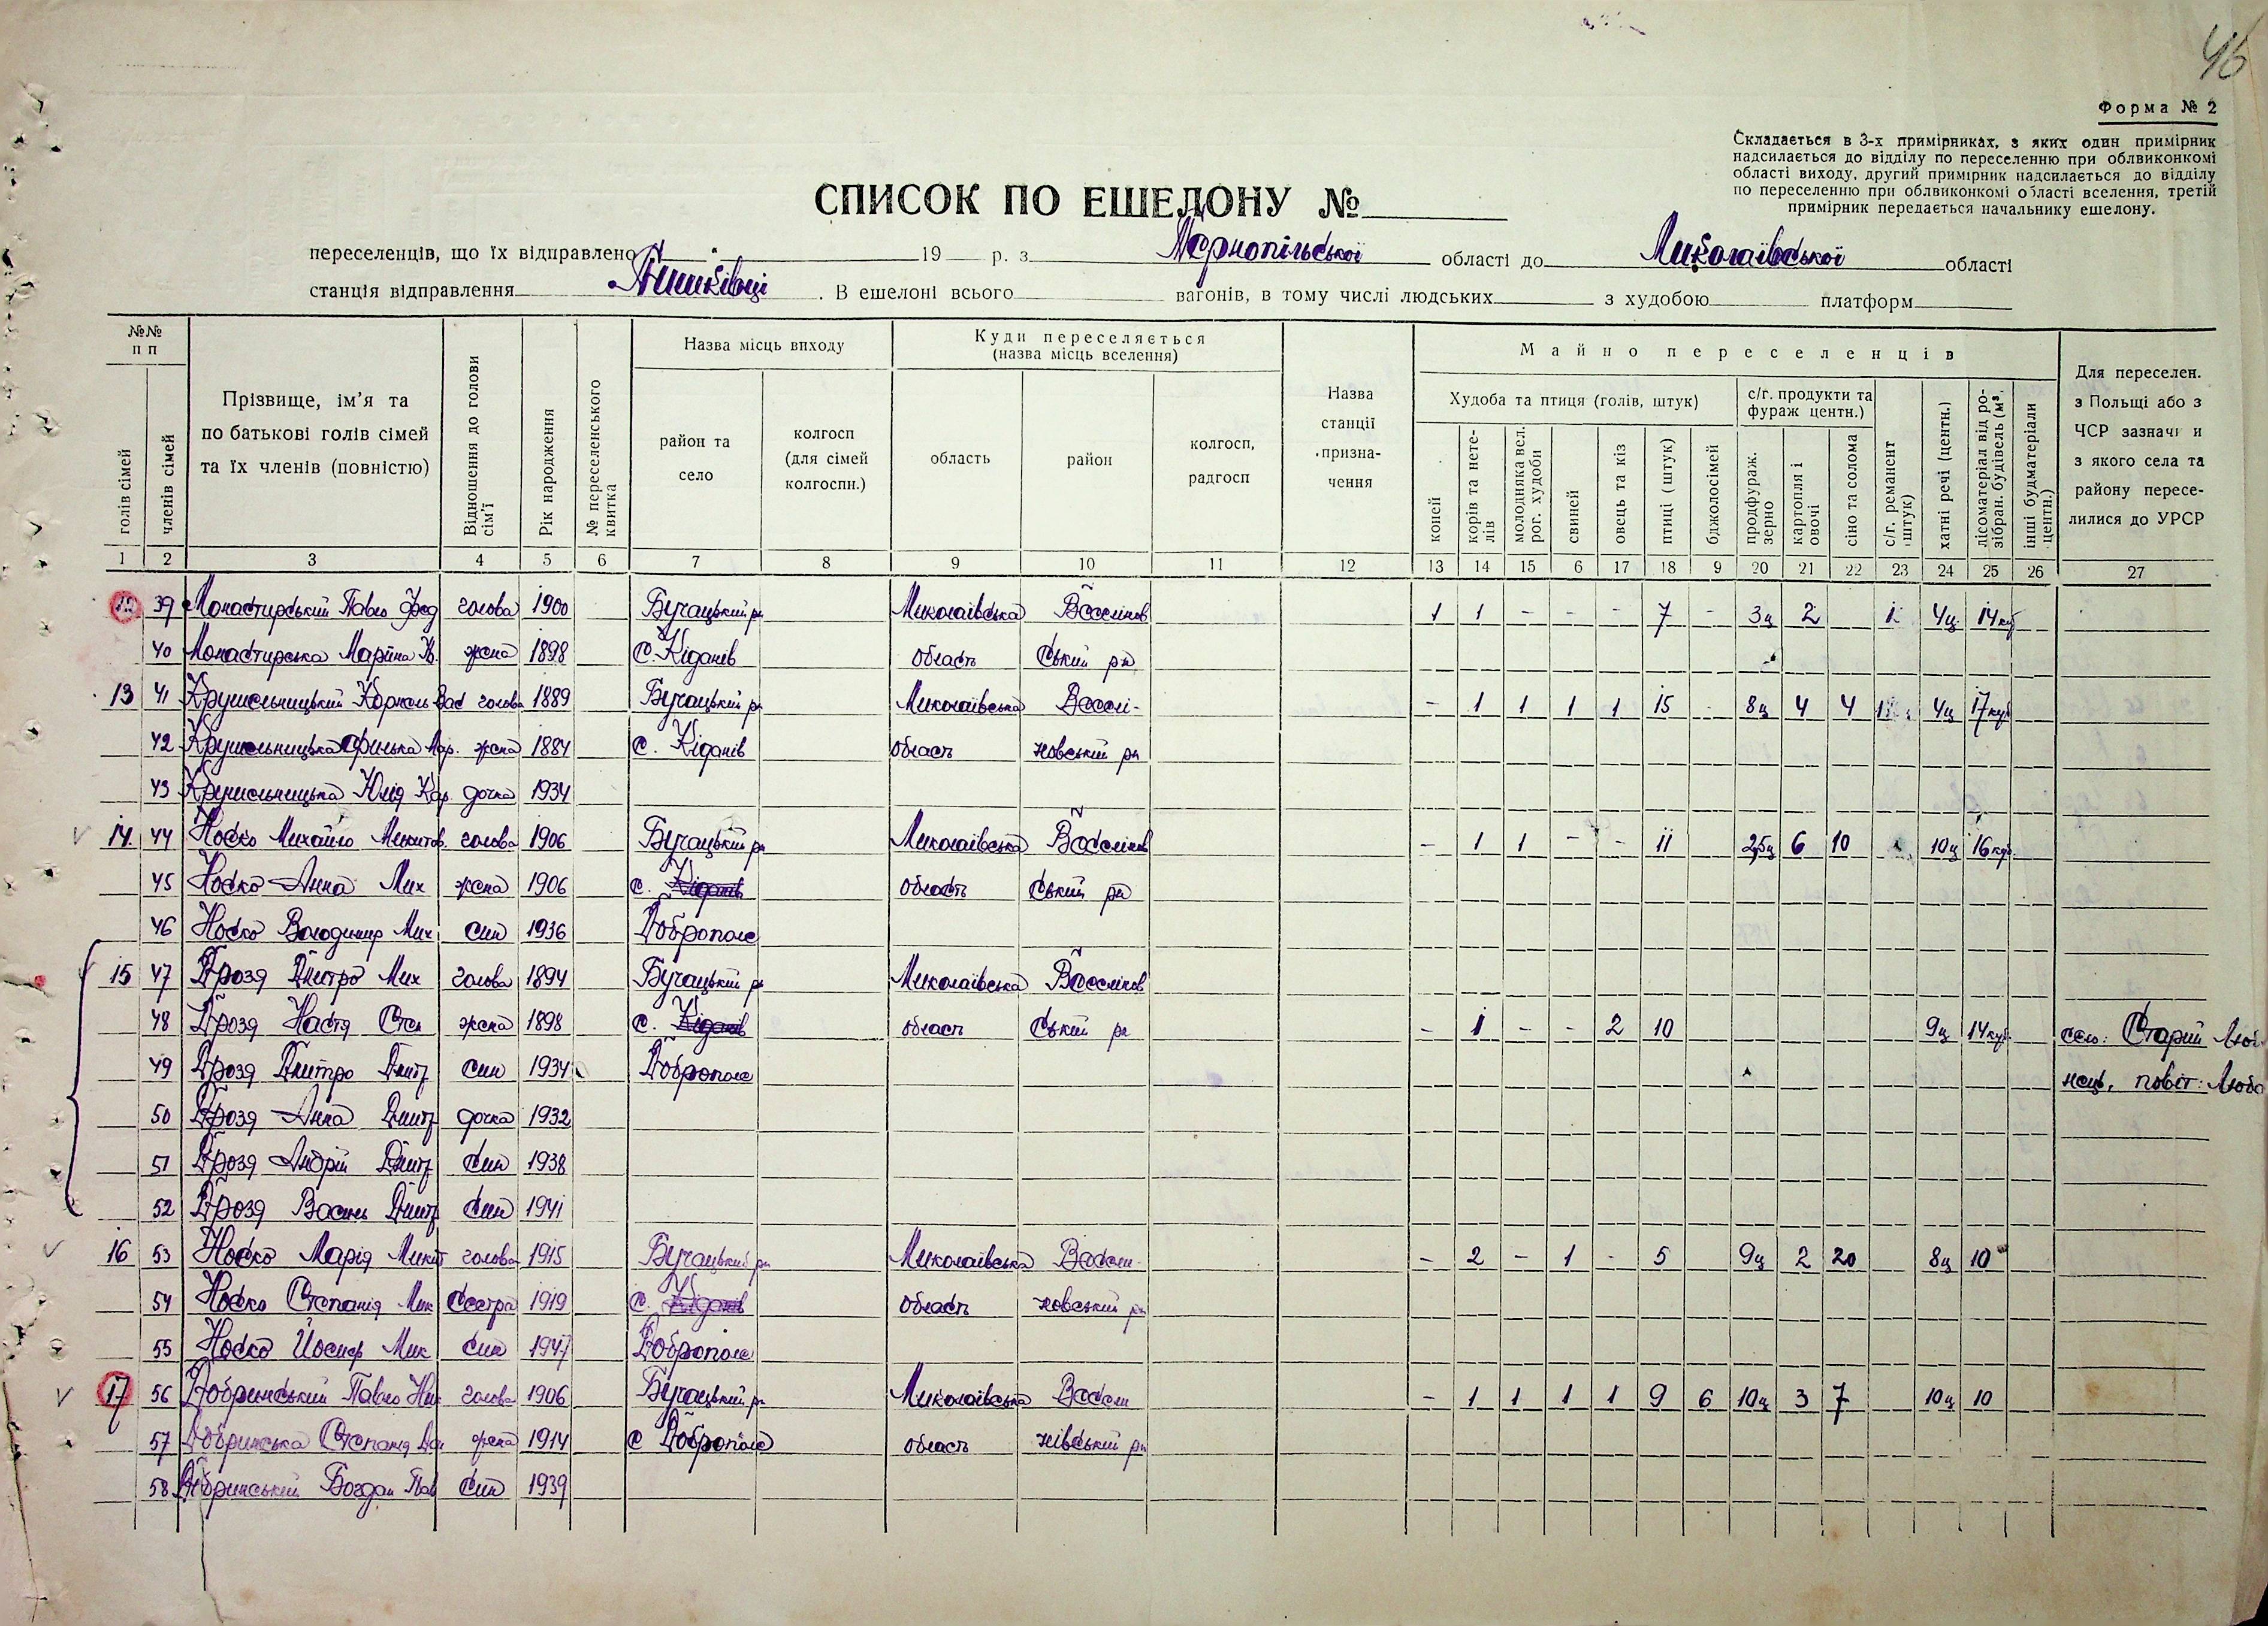 46
Форма № 2
Складається в 3-х примірниках, з яких один примірник
надсилається до відділу по переселенню при облвиконкомі
області виходу, другий примірник надсилається до відділу
по переселенню при облвиконкомі області вселення, третій
примірник передається начальнику ешелону.
СПИСОК ПО ЕШЕЛОНУ №
переселенців, що їх відправлено " " 19 р. з Тернопільської області до Миколаївської області
станція відправлення Пишківці . В ешелоні всього вагонів, в тому числі людських з худобою платформ
№№ п п
голів сімей
членів сімей
Прізвище, ім'я та
по батькові голів сімей
та їх членів (повністю)
Відношення до голови сім'ї
Рік народження
№ переселенського квитка
Назва місць виходу
район та
село
колгосп
(для сімей
колгоспн.)
Куди переселяється
(назва місць вселення)
область
район
колгосп,
радгосп
Назва
станції
призна-
чення
Майно переселенців
Худоба та птиця (голів, штук)
коней
корів та нете-
лів
молодняка вел.
рог. худоби
свиней
овець та кіз
птиці (штук)
бджолосімей
с/г. продукти та
фураж центн.)
продфураж.
зерно
картопля і
овочі
сіно та солома
с/г. реманент
штук)
хатні речі (центн.)
лісоматеріал від ро-
зібран. будівель (м³
інші будматеріали
центн.)
Для переселен.
з Польщі або з
ЧСР зазначи и
з якого села та
району пересе-
лилися до УРСР
1 2 3 4 5 6 7 8 9 10 11 12 13 14 15 6 17 18 9 20 21 22 23 24 25 26 27
12 39 Монастирський Павло Фед голова 1900 Бучацький рн Миколаївська Веселинов 1 1 - - - 7 - 3ц 2 1 4ц 14куб
40 Монастирська Марина жена 1898 с. Кіданів область ський рн
13 41 Крушельницький Корноль Вас голова 1889 Бучацький рн Миколаївська Веселі- - 1 1 1 1 15 - 8ц 4 4 4ц 17куб
42 Крушельницька жена 1884 с. Кіданів область новський рн
43 Крушельницька Юлія Кор. дочка 1934
14. 44 Носко Михайло Микитов. голова 1906 Бучацький рн Миколаївська Веселинов - 1 1 - - 11 2,5ц 6 10 10ц 16куб
45 Носко Анна Мих жена 1906 с. Кіданів область ський рн
46 Носко Володимир Мих син 1936 Доброполе
15 47 Дрозя Дмитро Мих голова 1894 Бучацький рн Миколаївська Веселинов
48 Дрозя Настя Степ жена 1898 с. Кіданів область ський рн - 1 - - 2 10 9ц 14куб село: Старий Люб
49 Дрозя Дмитро Дмитр син 1934 Доброполе нець, повіт: Люба
50 Дрозя Анна Дмитр дочка 1932
51 Дрозя Андрій Дмитр син 1938
52 Дрозя Василь Дмитр син 1941
16 53 Носко Марія Микит голова 1915 Бучацький рн Миколаївська Весели- - 2 - 1 - 5 9ц 2 20 8ц 10
54 Носко Степанія Мик сестра 1919 с. Кіданів область новський рн
55 Носко Йосиф Мик син 1947 Доброполе
17 56 Добринський Павло Ник голова 1906 Бучацький рн Миколаївська Весели - 1 1 1 1 9 6 10ц 3 7 10ц 10
57 Добринська Степанія жена 1914 с Доброполе область нівський рн
58 Добринський Богдан Пав син 1939